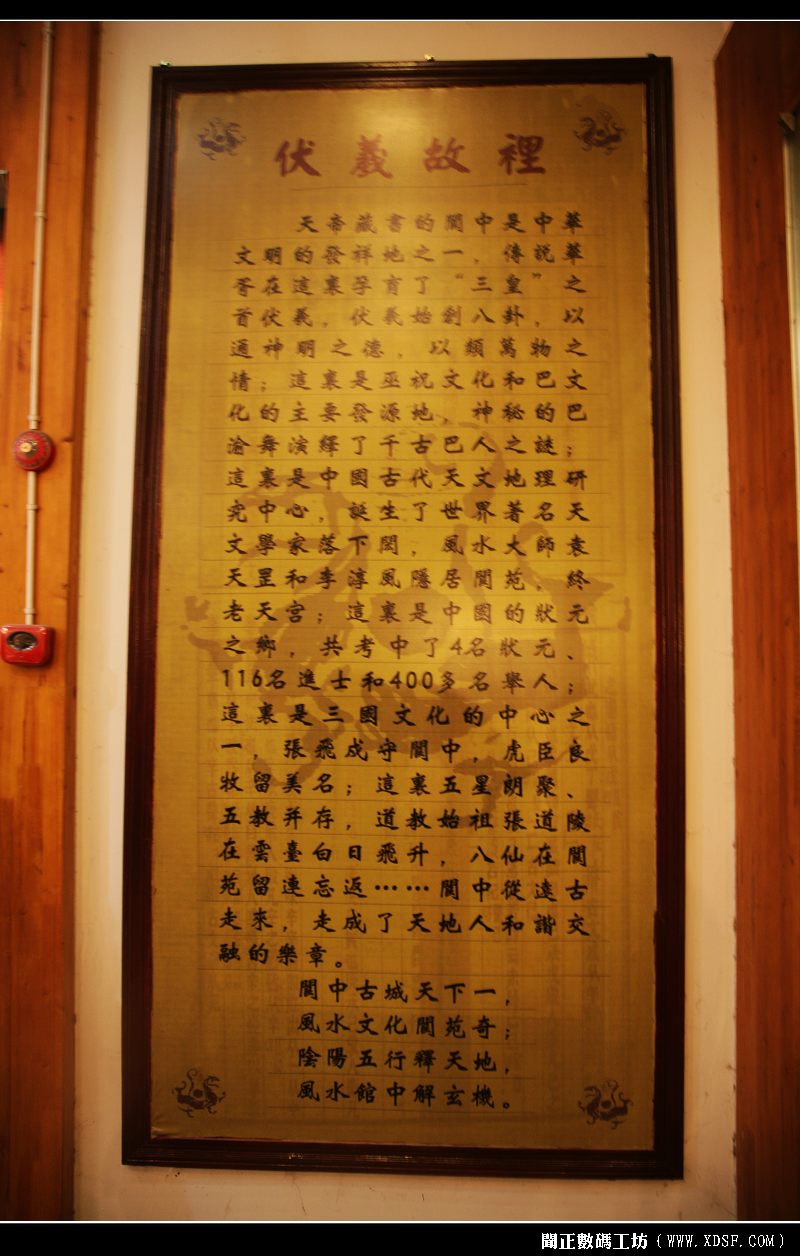 伏羲故裡
天帝藏書的閬中是中華
文明的發祥地之一，傳說華
胥在這裏孕育了“三皇”之
首伏羲，伏羲始創八卦，以
通神明之德，以類萬物之
情；這裏是巫祝文化和巴文
化的主要發源地，神秘的巴
渝舞演繹了千古巴人之謎；
這裏是中國古代天文地理研
究中心，誕生了世界著名天
文學家落下閎，風水大師袁
天罡和李淳風隱居閬苑，終
老天宮；這裏是中國的狀元
之鄉，共考中了4名狀元、
116名進士和400多名舉人；
這裏是三國文化的中心之
一，張飛成守閬中，虎臣良
牧留美名；這裏五星朗聚、
五教并存，道教始祖張道陵
在雲臺白日飛升，八仙在閬
苑留連忘返……閬中從遠古
走來，走成了天地人和諧交
融的樂章。
閬中古城天下一，
風水文化閬苑奇；
陰陽五行釋天地，
風水館中解玄機。
聞正數碼工坊（WWW.XDSF.COM）